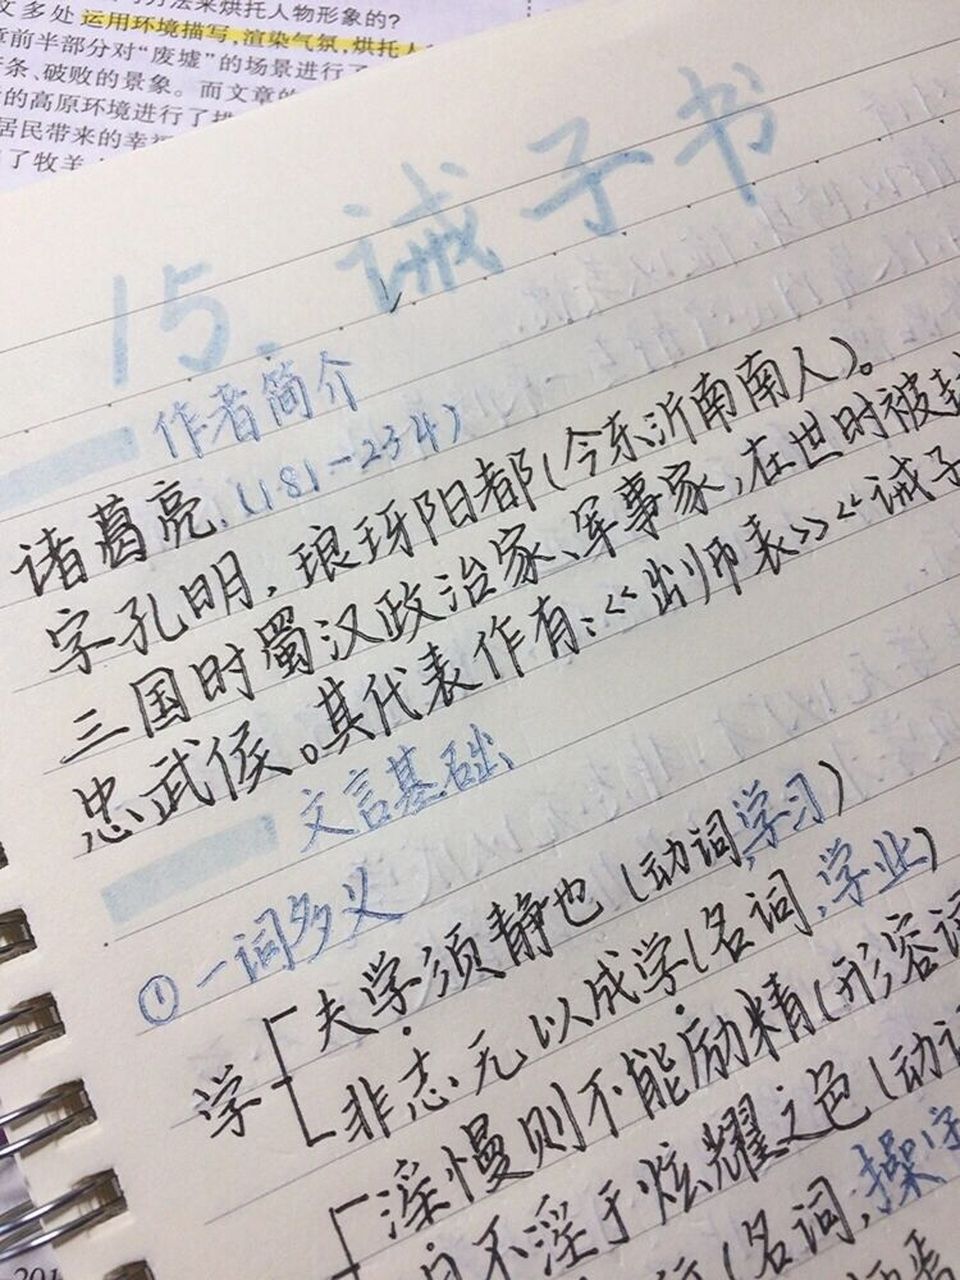 方法来烘托人物形象的?
文多处运用环境描写,渲染气氛,烘托人
章前半部分对“废墟”的场景进行了
条、破败的景象。而文章的
的高原环境进行了
居民带来的幸福
了牧羊
15.诫子书
作者简介
诸葛亮.(181-234)
字孔明,琅琊阳都(今东沂南南人)。
三国时蜀汉政治家、军事家,在世时被
忠武侯。其代表作有:《出师表》《诫子
文言基础
①一词多义
学
夫学须静也(动词,学习)
非志无以成学(名词,学业)
淫慢则不能励精(形容词
不淫于炫耀之色(动词
(名词,操守
201